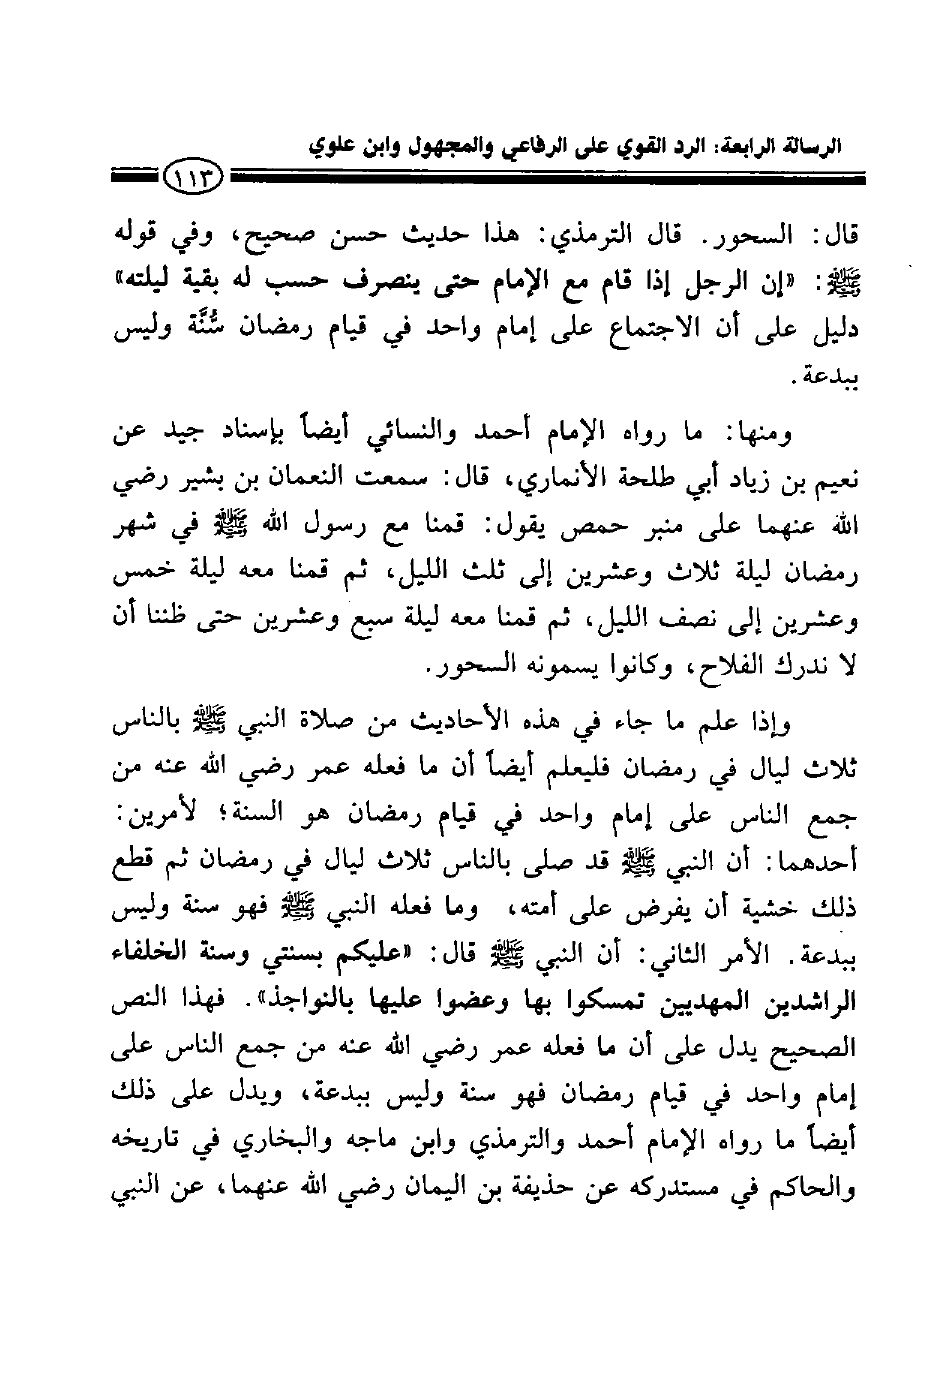 الرسالة الرابعة: الرد القوي على الرفاعي والمجهول وابن علوي
١١٣
قال: السحور. قال الترمذي: هذا حديث حسن صحيح، وفي قوله
ﷺ: «إن الرجل إذا قام مع الإمام حتى ينصرف حسب له بقية ليلته»
دليل على أن الاجتماع على إمام واحد في قيام رمضان سُنَّة وليس
ببدعة.
ومنها: ما رواه الإمام أحمد والنسائي أيضاً بإسناد جيد عن
نعيم بن زياد أبي طلحة الأنماري، قال: سمعت النعمان بن بشير رضي
الله عنهما على منبر حمص يقول: قمنا مع رسول الله ﷺ في شهر
رمضان ليلة ثلاث وعشرين إلى ثلث الليل، ثم قمنا معه ليلة خمس
وعشرين إلى نصف الليل، ثم قمنا معه ليلة سبع وعشرين حتى ظننا أن
لا ندرك الفلاح، وكانوا يسمونه السحور.
وإذا علم ما جاء في هذه الأحاديث من صلاة النبي ﷺ بالناس
ثلاث ليال في رمضان فليعلم أيضاً أن ما فعله عمر رضي الله عنه من
جمع الناس على إمام واحد في قيام رمضان هو السنة؛ لأمرين:
أحدهما: أن النبي ﷺ قد صلى بالناس ثلاث ليال في رمضان ثم قطع
ذلك خشية أن يفرض على أمته، وما فعله النبي ﷺ فهو سنة وليس
ببدعة. الأمر الثاني: أن النبي ﷺ قال: «عليكم بسنتي وسنة الخلفاء
الراشدين المهديين تمسكوا بها وعضوا عليها بالنواجذ». فهذا النص
الصحيح يدل على أن ما فعله عمر رضي الله عنه من جمع الناس على
إمام واحد في قيام رمضان فهو سنة وليس ببدعة، ويدل على ذلك
أيضاً ما رواه الإمام أحمد والترمذي وابن ماجه والبخاري في تاريخه
والحاكم في مستدركه عن حذيفة بن اليمان رضي الله عنهما، عن النبي